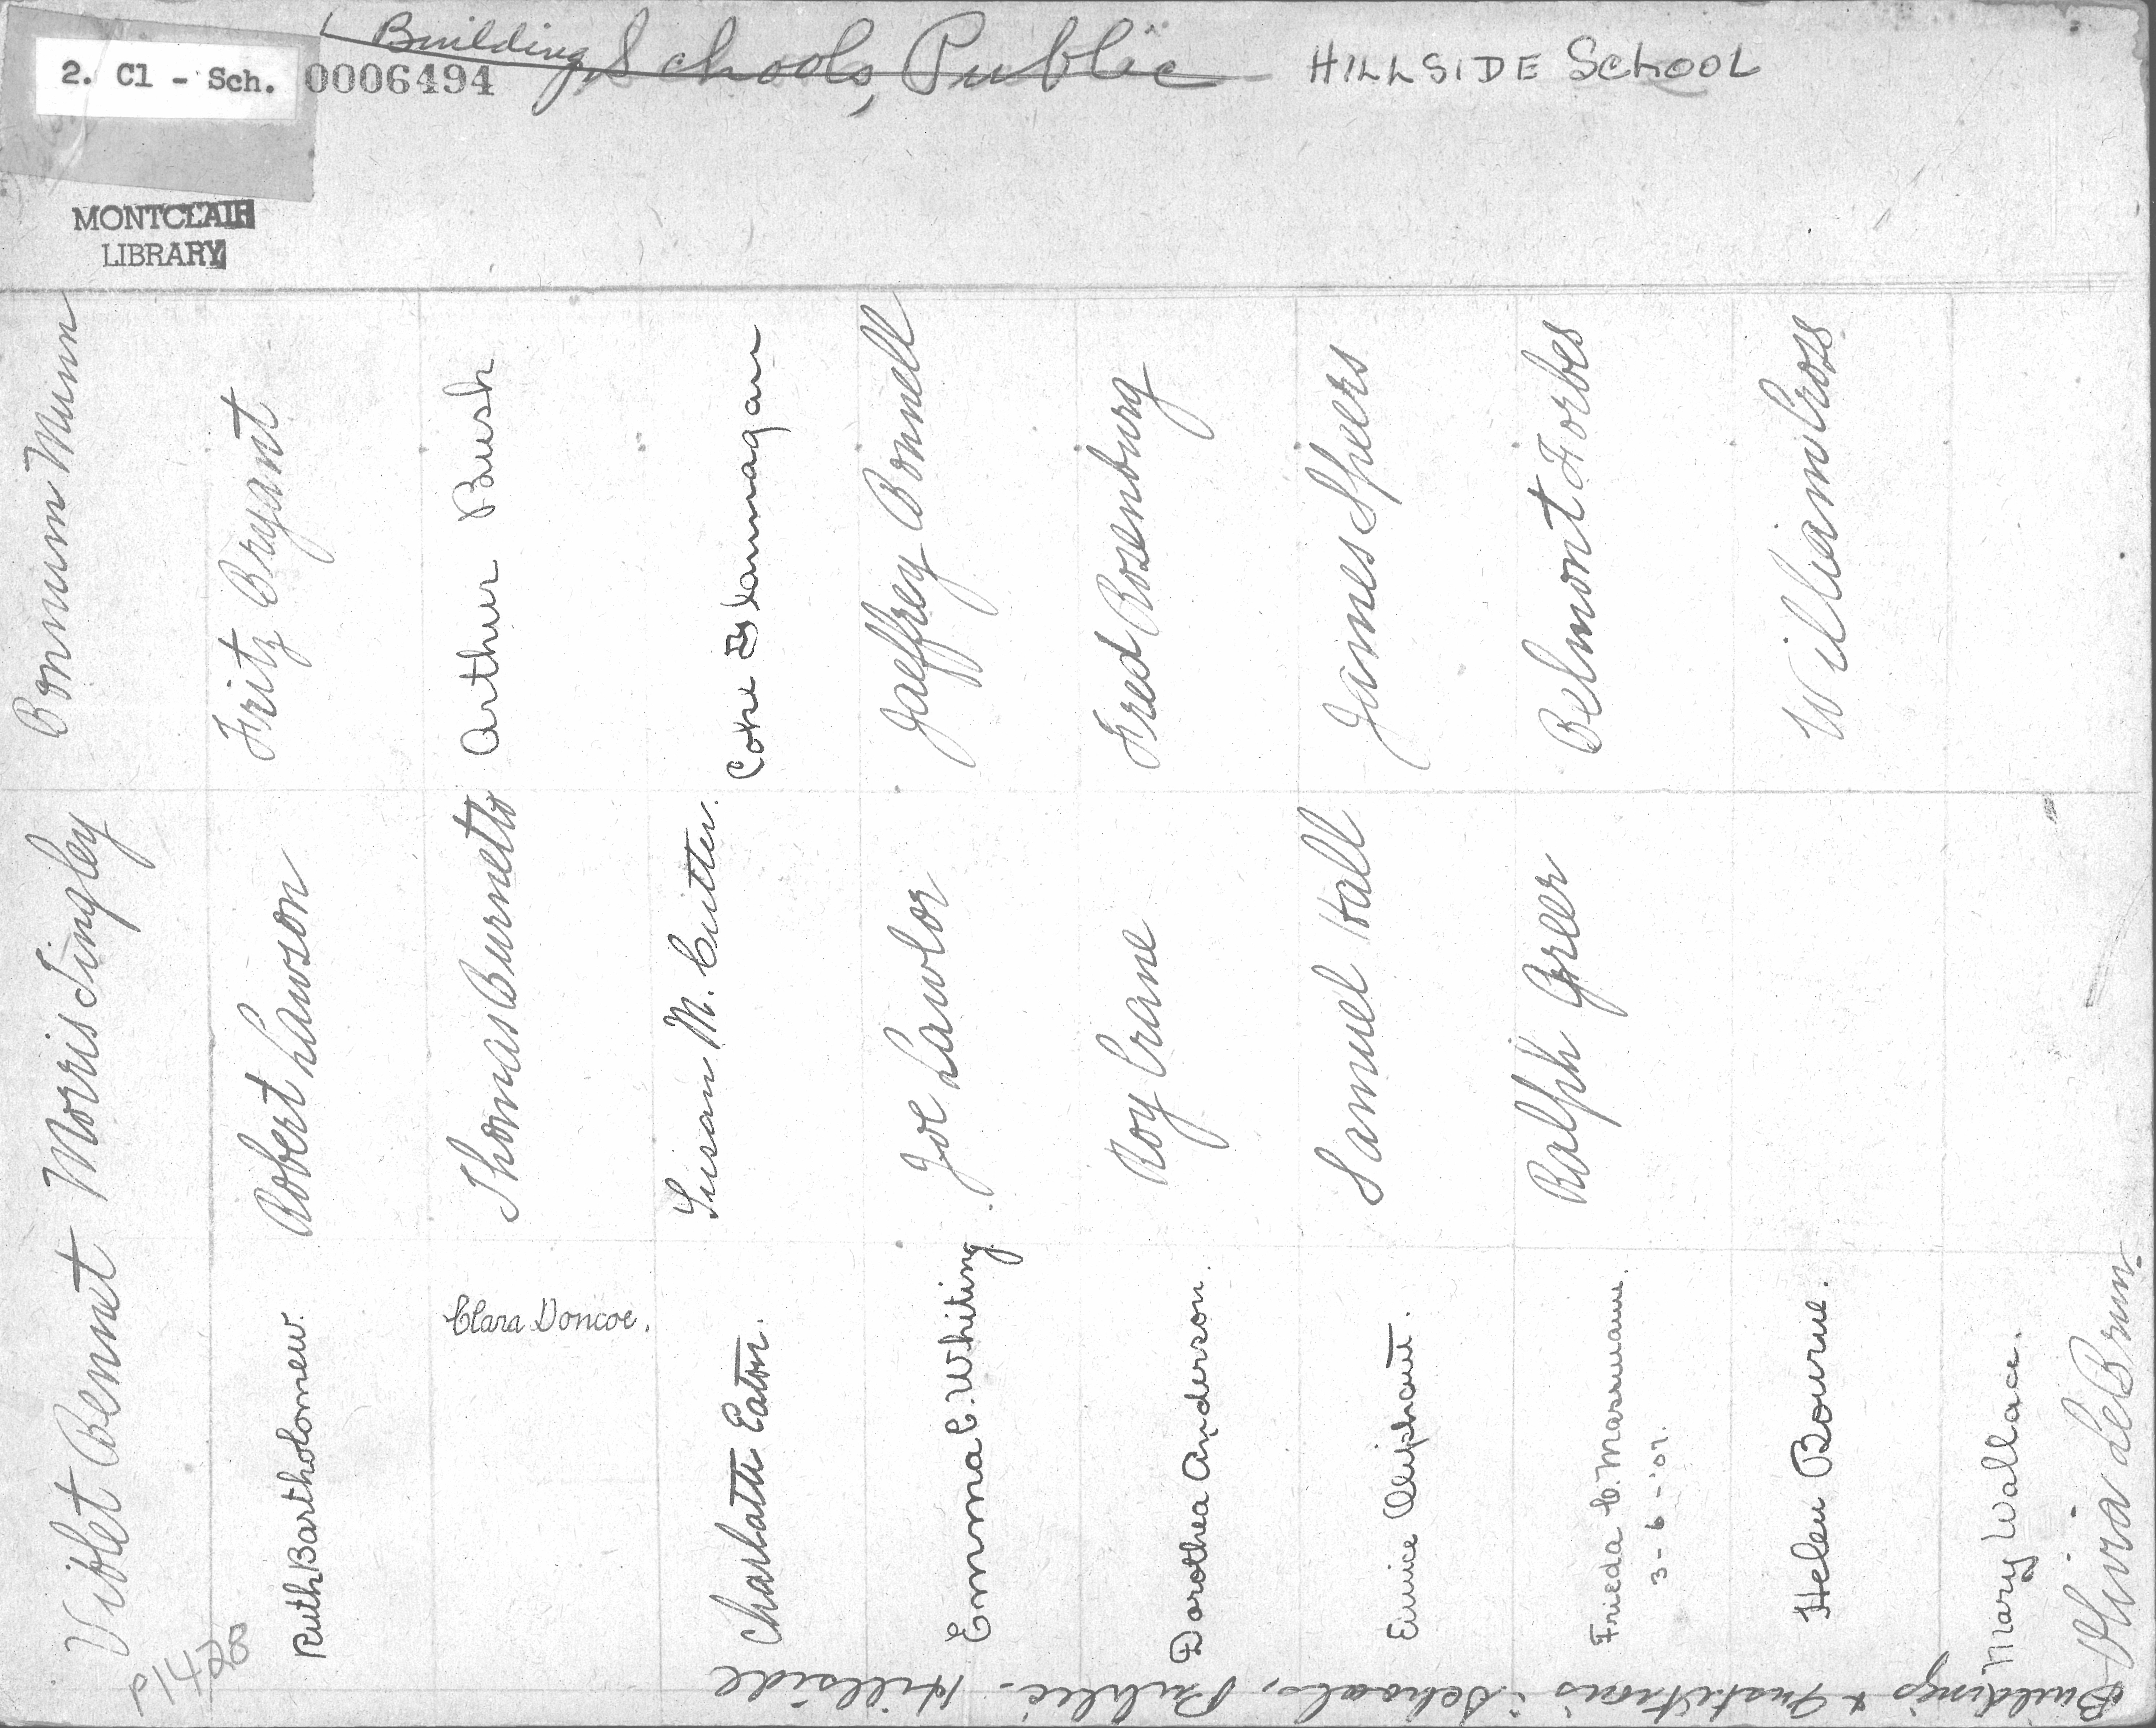 Building
Schools, Public
HILLSIDE SCHOOL
2. Cl - Sch.
0006494
MONTCLAIR
LIBRARY
Munn
Fritz Bryant
Arthur Bush
Jaeffrey Bonnell
Fred Rosenburg
James Speers
Belmont Forbes
William Cross
Morris Tingley
Robert Lawson
Thomas Burnette
Susan M. Cutter.
Joe Lawlor
Roy Crane
Samuel Hall
Ralph Greer
Violet Bennet
Ruth Bartholomew.
Clara Doncoe.
Charlotte Eaton.
Emma C. Whiting.
Dorothea Anderson.
Eunice Oliphant.
Frieda C. Masmann.
3-6-'07.
Helen Bourne.
Mary Wallace.
Olivia LeBrun.
P1420
Buildings + Institutions: Schools, Public. Hillside